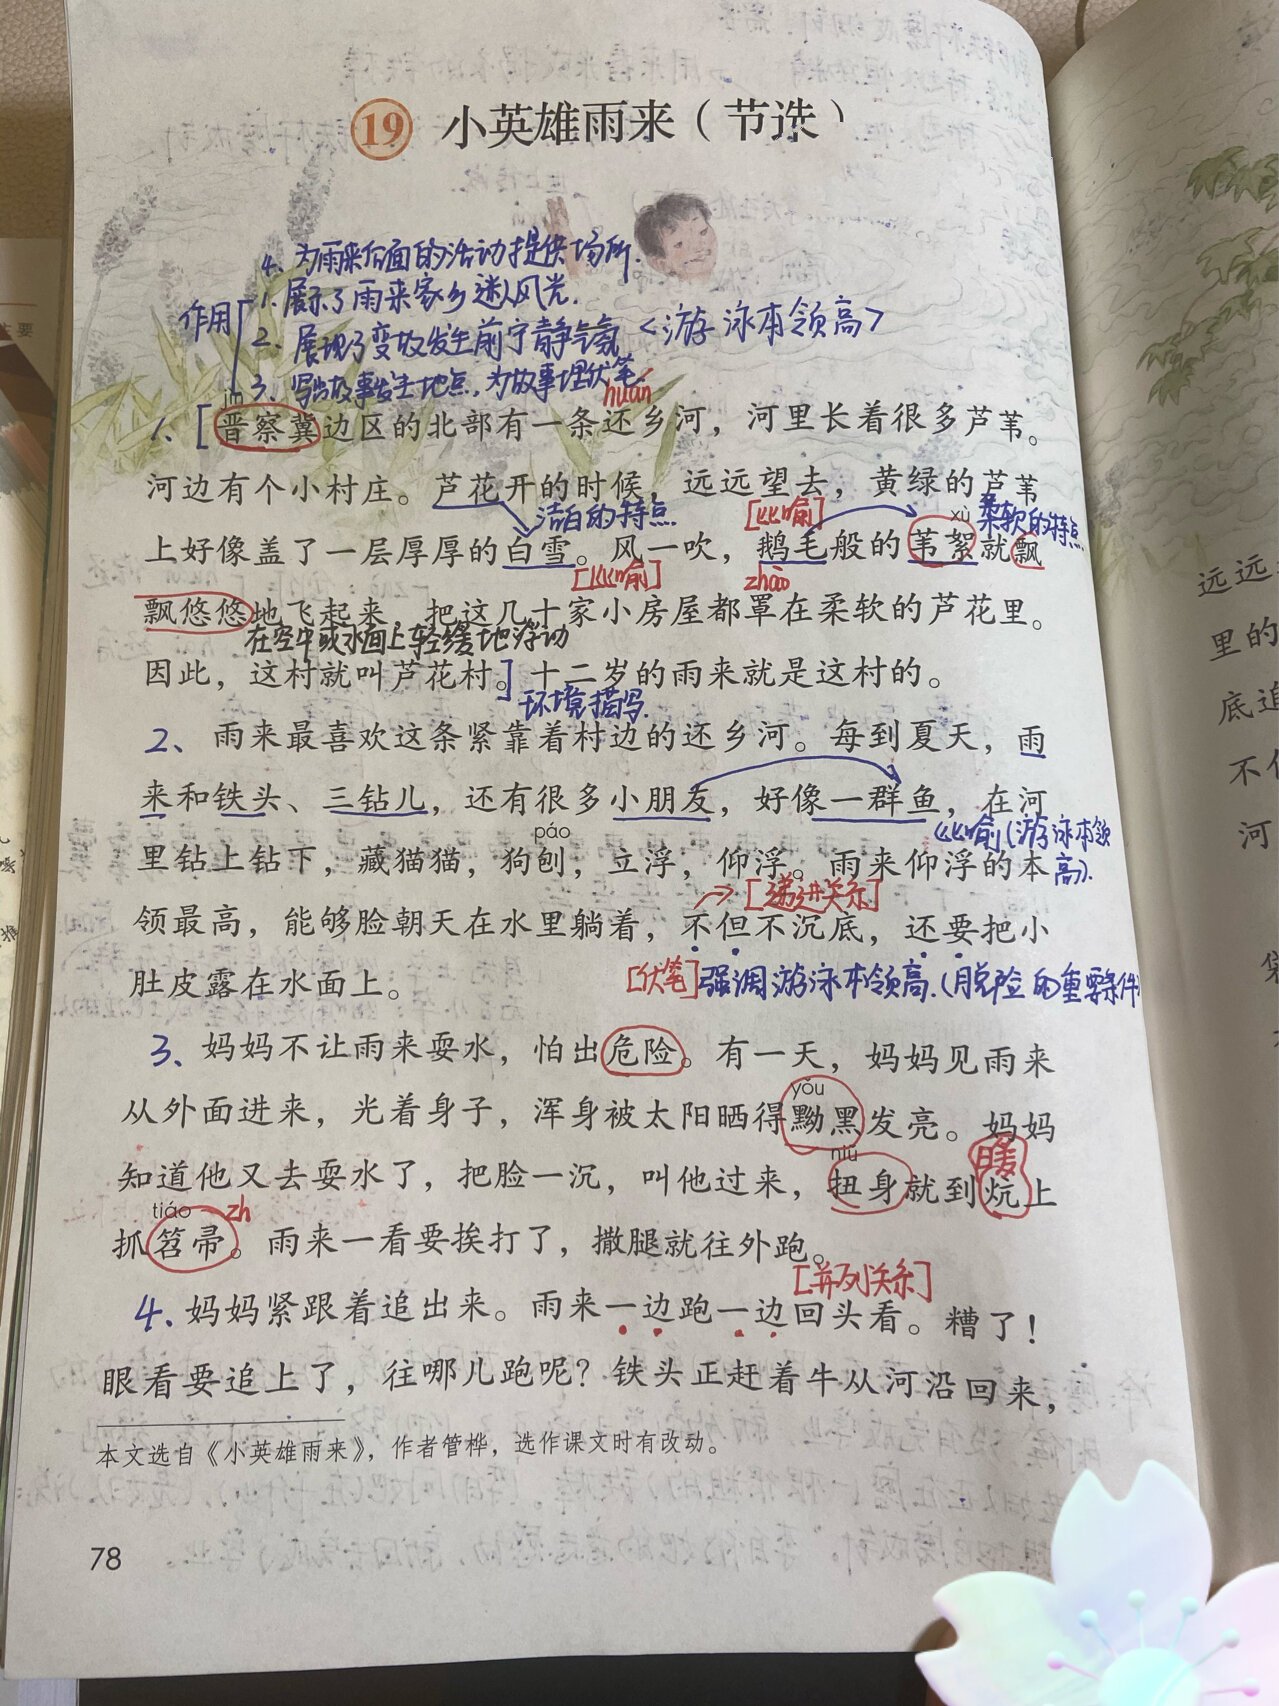 19 小英雄雨来（节选）
4. 为雨来后面的活动提供场所.
作用
1. 展示了雨来家乡迷人风光.
2. 展现了变故发生前宁静气氛 <游泳本领高>
3. 写出故事发生地点.为故事埋伏笔.
jìn huán
1、[晋察冀边区的北部有一条还乡河，河里长着很多芦苇。
河边有个小村庄。芦花开的时候，远远望去，黄绿的芦苇
洁白的特点 [比喻] xù 柔软的特点
上好像盖了一层厚厚的白雪。风一吹，鹅毛般的苇絮就飘
[比喻] zhào
飘悠悠地飞起来，把这几十家小房屋都罩在柔软的芦花里。
在空中或水面上轻缓地浮动
因此，这村就叫芦花村。]十二岁的雨来就是这村的。
环境描写.
2、雨来最喜欢这条紧靠着村边的还乡河。每到夏天，雨
来和铁头、三钻儿，还有很多小朋友，好像一群鱼，在河
páo 比喻(游泳本领高).
里钻上钻下，藏猫猫，狗刨，立浮，仰浮。雨来仰浮的本
[递进关系]
领最高，能够脸朝天在水里躺着，不但不沉底，还要把小
肚皮露在水面上。
[伏笔]强调游泳本领高.(脱险的重要条件)
3、妈妈不让雨来耍水，怕出危险。有一天，妈妈见雨来
yǒu
从外面进来，光着身子，浑身被太阳晒得黝黑发亮。妈妈
niǔ 暖
知道他又去耍水了，把脸一沉，叫他过来，扭身就到炕上
tiáo zh
抓笤帚。雨来一看要挨打了，撒腿就往外跑。
[并列关系]
4、妈妈紧跟着追出来。雨来一边跑一边回头看。糟了！
眼看要追上了，往哪儿跑呢？铁头正赶着牛从河沿回来，
本文选自《小英雄雨来》，作者管桦，选作课文时有改动。
78
远远
里的
底追
河